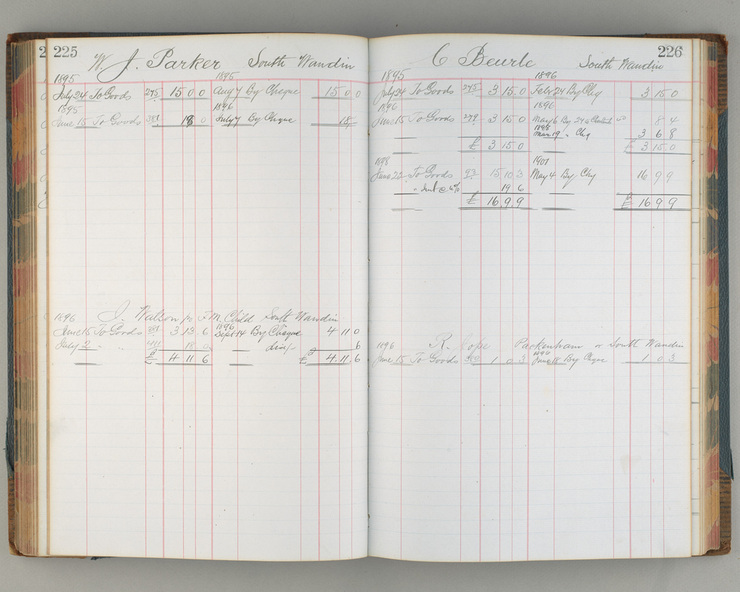 225
W J. Parker South Wandin
1895 1895
July 24 To Goods 15 0 0 Aug 7 By Cheque 15 0 0
1895 1896
June 15 To Goods 18 0 July 7 By Cheque 18
1896 J. Watson for F. M. Child South Wandin
June 15 To Goods 3 13 6 1896 Sept 14 By Cheque 4 11 0
July 2 " " 18 0 dis 6
£ 4 11 6 £ 4 11 6
226
C Beurle South Wandin
1895 1896
July 24 To Goods 3 15 0 Feby 24 By Chq 3 15 0
1896 1896
June 15 To Goods 3 15 0 May 6 By 8 4
1898 Chq 3 6 8
£ 3 15 0 £ 3 15 0
1898 1901
June 22 To Goods 15 10 3 May 4 By Chq 16 9 9
" Int @ 19 6
£ 16 9 9 £ 16 9 9
1896 R. Hope Packenham or South Wandin
June 15 To Goods 1 0 3 By Cheque 1 0 3